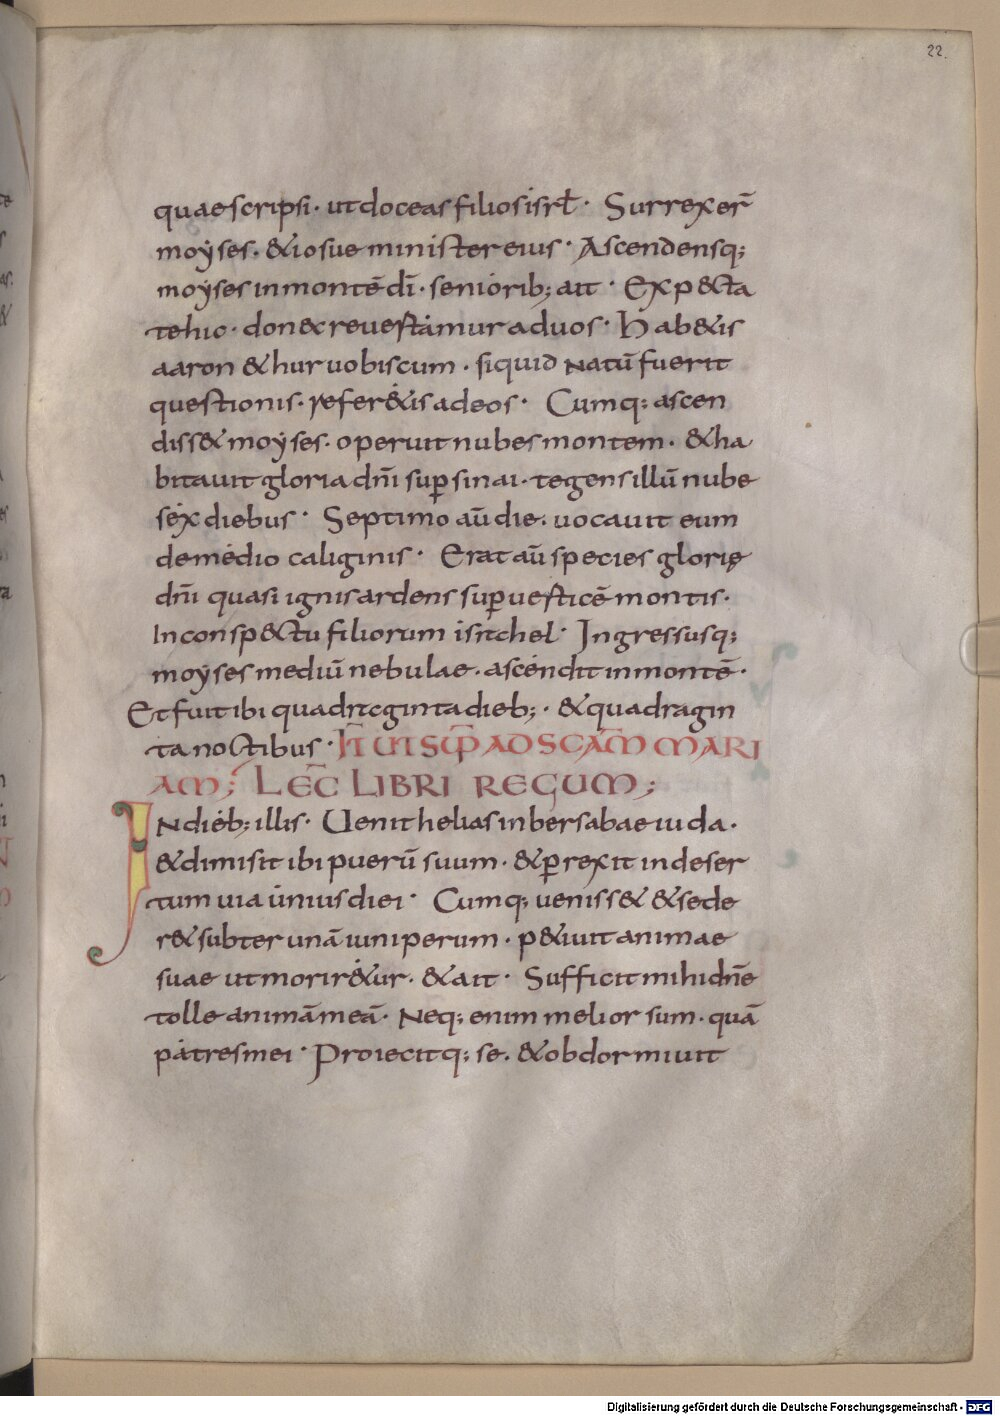 22.
quae scripsi · ut doceas filios isrł · Surrexer̄
moyses · & iosue minister eius · Ascendensq;
moyses in montē dī · seniorib; ait · Exp&cta
te hic · donec reuertamur ad uos · Hab&is
aaron & hur uobiscum · siquid natū fuerit
questionis · refer&is ad eos · Cumq; ascen
diss& moyses · operuit nubes montem · & ha
bitauit gloria dn̄i sup̄ sinai · tegens illū nube
sex diebus · Septimo aū die · uocauit eum
de medio caliginis · Erat aū species glorię
dn̄i quasi ignis ardens sup̄ uerticē montis ·
In conspectu filiorum israhel · Ingressusq;
moyses mediū nebulae · ascendit in montē ·
Et fuit ibi quadraginta dieb; · & quadragin
ta noctibus · FR̄ UI SUP̄ AD SCĀM MARI
AM; LEC̄ LIBRI REGUM;
IN dieb; illis · Uenit helias in bersabae iuda ·
& dimisit ibi puerū suum · & p̄rexit in deser
tum uia unius diei · Cumq; ueniss& & sede
r& subter unā iuniperum · p&iuit animae
suae ut morir&ur · & ait · Sufficit mihi dn̄e
tolle animā meā · Neq; enim melior sum · quā
patres mei · Proiecitq; se · & obdormiuit
Digitalisierung gefördert durch die Deutsche Forschungsgemeinschaft - DFG